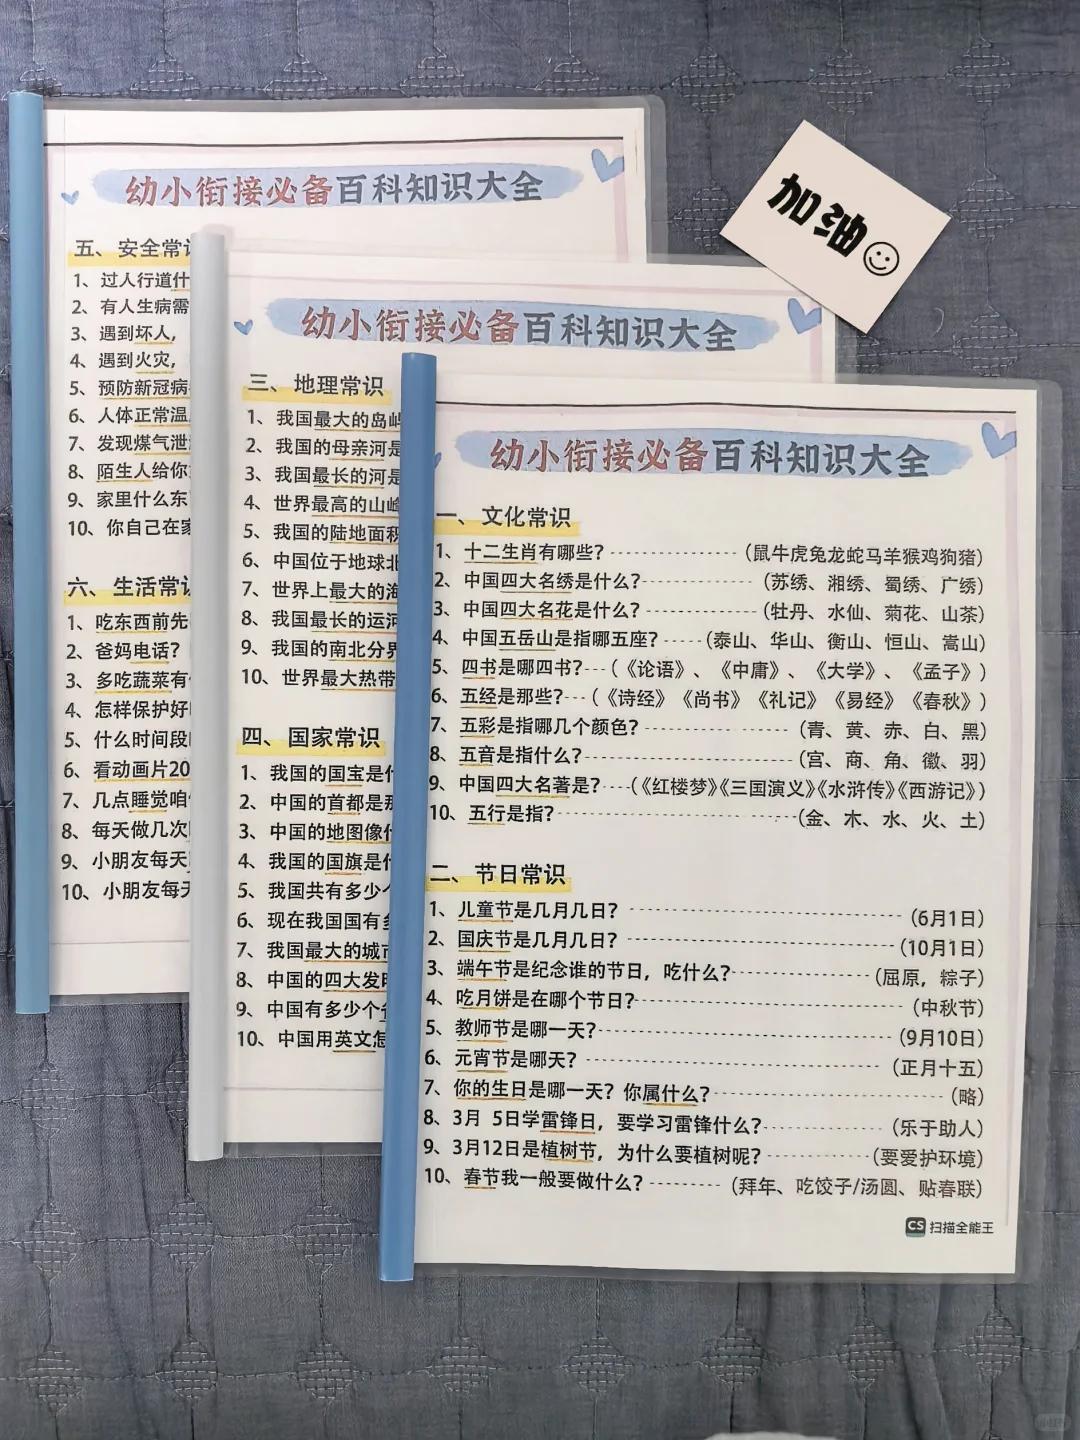 幼小衔接必备百科知识大全
五、安全常
1、过人行道什
2、有人生病需
3、遇到坏人，
4、遇到火灾，
5、预防新冠病
6、人体正常温
7、发现煤气泄
8、陌生人给你
9、家里什么东
10、你自己在家
六、生活常
1、吃东西前先
2、爸妈电话？
3、多吃蔬菜有
4、怎样保护好
5、什么时间段
6、看动画片20
7、几点睡觉咱
8、每天做几次
9、小朋友每天
10、小朋友每天
幼小衔接必备百科知识大全
三、地理常识
1、我国最大的岛屿
2、我国的母亲河是
3、我国最长的河是
4、世界最高的山峰
5、我国的陆地面积
6、中国位于地球北
7、世界上最大的海
8、我国最长的运河
9、我国的南北分界
10、世界最大热带
四、国家常识
1、我国的国宝是什
2、中国的首都是那
3、中国的地图像什
4、我国的国旗是什
5、我国共有多少个
6、现在我国国有多
7、我国最大的城市
8、中国的四大发明
9、中国有多少个省
10、中国用英文怎
幼小衔接必备百科知识大全
一、文化常识
1、十二生肖有哪些？（鼠牛虎兔龙蛇马羊猴鸡狗猪）
2、中国四大名绣是什么？（苏绣、湘绣、蜀绣、广绣）
3、中国四大名花是什么？（牡丹、水仙、菊花、山茶）
4、中国五岳山是指哪五座？（泰山、华山、衡山、恒山、嵩山）
5、四书是哪四书？（《论语》、《中庸》、《大学》、《孟子》）
6、五经是那些？（《诗经》《尚书》《礼记》《易经》《春秋》）
7、五彩是指哪几个颜色？（青、黄、赤、白、黑）
8、五音是指什么？（宫、商、角、徽、羽）
9、中国四大名著是？（《红楼梦》《三国演义》《水浒传》《西游记》）
10、五行是指？（金、木、水、火、土）
二、节日常识
1、儿童节是几月几日？（6月1日）
2、国庆节是几月几日？（10月1日）
3、端午节是纪念谁的节日，吃什么？（屈原，粽子）
4、吃月饼是在哪个节日？（中秋节）
5、教师节是哪一天？（9月10日）
6、元宵节是哪天？（正月十五）
7、你的生日是哪一天？你属什么？（略）
8、3月 5日学雷锋日，要学习雷锋什么？（乐于助人）
9、3月12日是植树节，为什么要植树呢？（要爱护环境）
10、春节我一般要做什么？（拜年、吃饺子/汤圆、贴春联）
CS 扫描全能王
加油